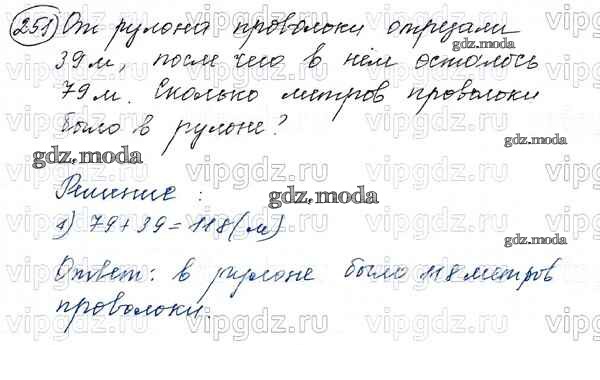 251 От рулона проволоки отрезали
39 м, после чего в нём осталось
79 м. Сколько метров проволоки
было в рулоне?
Решение :
1) 79 + 39 = 118 (м)
Ответ: в рулоне было 118 метров
проволоки.
gdz.moda
gdz.moda
gdz.moda
gdz.moda
gdz.moda
vipgdz.ru vipgdz.ru vipgdz.ru vipgdz.ru